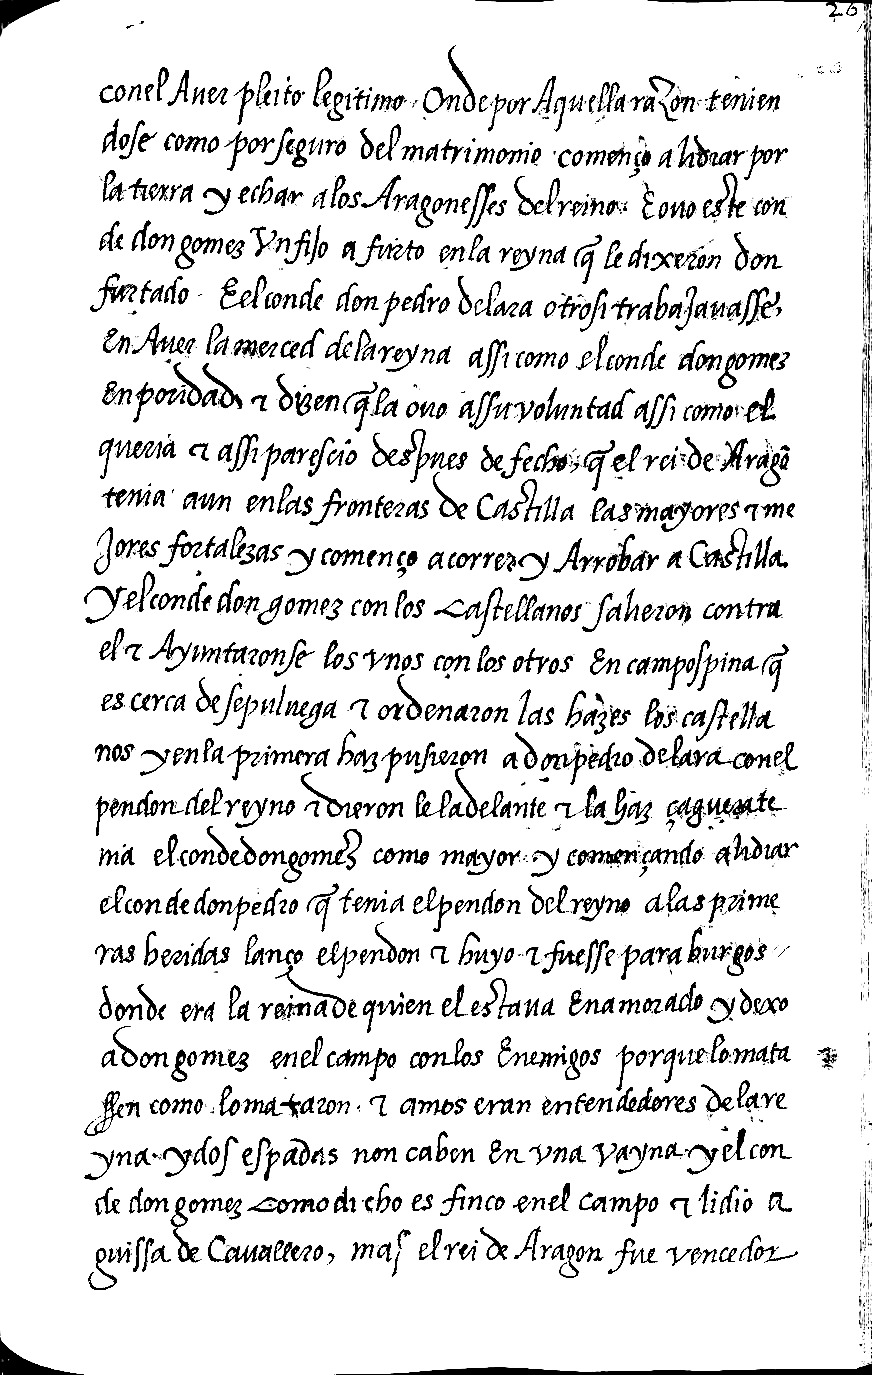 26
conel Aver pleito legitimo. Onde por Aquella razon tenien
dose como por seguro del matrimonio començo a lidiar por
la tierra y echar a los Aragonesses del reino. E ovo este con
de don gomez Vn fijo a furto en la reyna q̃ le dixeron don
furtado. E el conde don pedro de lara otrosi trabajauasse,
En Aver la merced de la reyna assi como el conde don gomez
En poridad, τ dizen q̃ la ouo assu voluntad assi como el
queria τ assi parescio despues de fecho, q̃ el rei de Aragõ
tenia aun en las fronteras de Castilla las mayores τ me
Jores fortalezas y començo a correr y Arrobar a Castilla.
Y el conde don gomez con los Castellanos salieron contra
el τ Ayuntaronse los vnos con los otros En campospina q̃
es cerca de sepuluega τ ordenaron las hazes los castella
nos y en la primera haz pusieron a don pedro de lara con el
pendon del reyno τ dieron le la delante τ la haz çaguera te
nia el conde don gomez como mayor y començando a lidiar
el conde don pedro q̃ tenia el pendon del reyno a las prime
ras heridas lanço el pendon τ huyo τ fuesse para burgos
donde era la reina de quien el estaua Enamorado y dexo
a don gomez en el campo con los Enemigos porque lo mata
ssen como lo mataron. τ amos eran entendedores de la re
yna y dos espadas non caben En vna vayna y el con
de don gomez como dicho es finco en el campo τ lidio a
guissa de Cauallero, mas el rei de Aragon fue vencedor